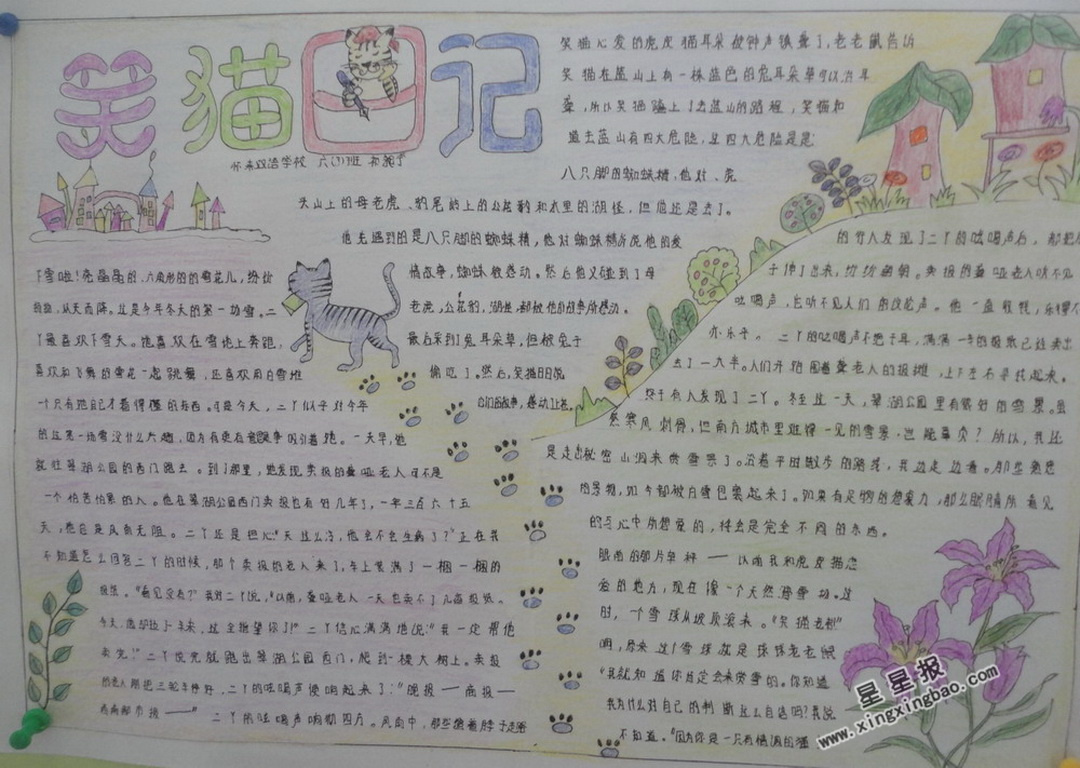 笑猫日记
怀来双语学校 六(3)班
笑猫心爱的虎皮猫耳朵被钟声镇聋了,老老鼠告诉
笑猫在蓝山上有一株蓝色的兔耳朵草可以治耳
聋,所以笑猫踏上了去蓝山的路程,笑猫知
道去蓝山有四大危险,这四大危险是:
八只脚的蜘蛛精,他对、虎
头山上的母老虎、豹尾屿上的公花豹和水里的湖怪,但他还是去了。
他先遇到的是八只脚的蜘蛛精,他对蜘蛛精诉说他的爱
情故事,蜘蛛被感动。然后他又碰到了母
老虎,公花豹,湖怪,都被他的故事所感动。
最后采到了兔耳朵草,但被兔子
偷吃了。然后,笑猫
下雪啦!亮晶晶的,六角形的的雪花儿,纷纷
扬扬,从天而降。这是今年冬天的第一场雪。二
丫最喜欢下雪天。她喜欢在雪地上奔跑,
喜欢和飞舞的雪花一起跳舞,还喜欢用白雪堆
一个只有她自己才看得懂的东西。可是今天,二丫似乎对今年
的这第一场雪没什么兴趣,因为有更有意思事吸引着她。一大早,她
就往翠湖公园的西门跑去。到了那里,她发现卖报的聋哑老人可不是
一个怕苦怕累的人。他在翠湖公园西门卖报也有好几年了,一年三百六十五
天,他总是风雨无阻。二丫还是担心“天这么冷,他会不会生病了?”正在我
不知道怎么回答二丫的时候,那个卖报的老人来了,车上装满了一捆一捆的
报纸。“看见没有?”我对二丫说,“以前,聋哑老人一天也卖不了几高报纸。
今天,他却拉了一车来,这全指望你了!”二丫信心满满地说:“我一定帮他
卖完!”二丫说完就跑出翠湖公园西门,爬到一棵大树上。卖报
的老人刚把三轮车停好,二丫的吆喝声便响起来了:“晚报——商报——
都市报——”二丫的吆喝声响彻四方。风雪中,那些缩着脖子走路
的行人发现了二丫的吆喝声后,都把
子伸了出来,纷纷
吆喝声,也听不见人们的议论声。他一直
亦乐乎。二丫的吆喝声不绝于耳,满满一车的报纸已经卖出
去了一大半。人们开始围着聋老人的报摊,上下左右寻找起来。
终于有人发现了二丫。冬至这一天,翠湖公园里有最好的雪景。虽
然寒风刺骨,但南方城市里难得一见的雪景,岂能辜负?所以,我还
是走出秘密山洞来赏雪景了。沿着平时散步的路线,我边走边看。那些熟悉
的景物,如今都被白雪包裹起来了。如果有足够的想象力,那么眼睛所看见
的与心中所想象的,往往是完全不同的东西。
眼前的那片草坪——以前我和虎皮猫恋
爱的地方,现在像一个天然滑雪场。这
时,一个雪球从坡顶滚来。“笑猫老弟!”
啊,原来这个雪球就是球球老老鼠
“我就知道你肯定会来赏雪的。你知道
我为什么对自己的判断这么自信吗?我说
不知道。“因为你是一只有情调的猫
星星报
www.xingxingbao.com